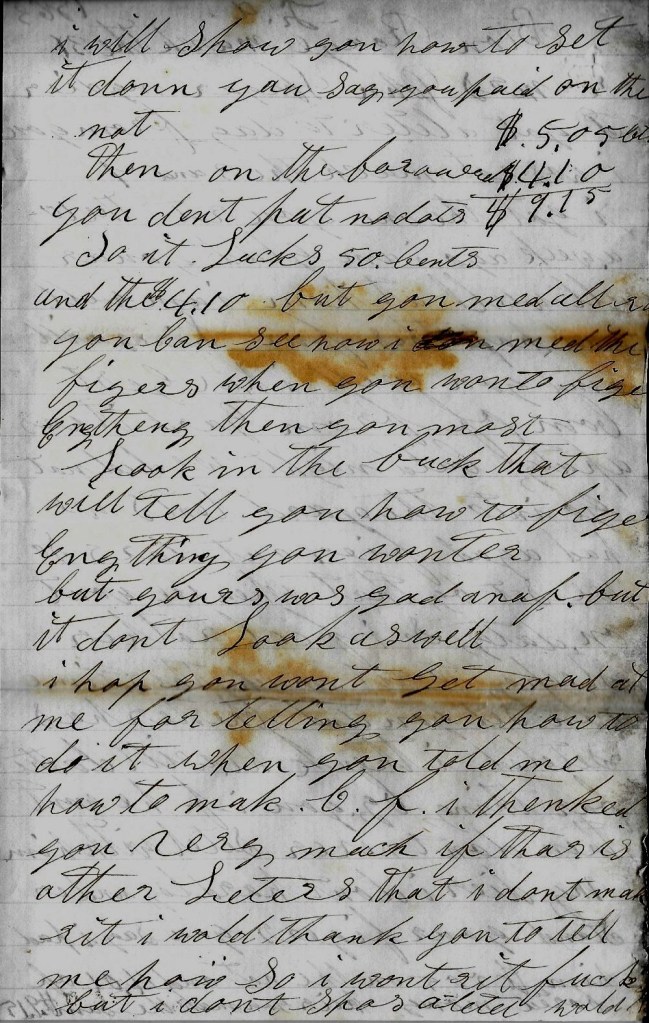 i will show you how to set
it down you say you paid on the
not $.5.05 cts
then on the $4.10
you dont put no dots $9.15
So it Lucks 50. Cents
and the $4.10 but you med all
you Can see how i don med the
figers when you won to fige
Eny theng then you most
Look in the buck that
will tell you how to fige
Eny thing you wonter
but yours was gad anaf. but
it dont Look as well
i hop you wont Get mad at
me for telling you how to
do it when you told me
how to mak. C. f. i thenked
you very much if thar is
other Leters that i dont mak
rit i wold thank you to tell
me how So i wont rit
but i dont wold